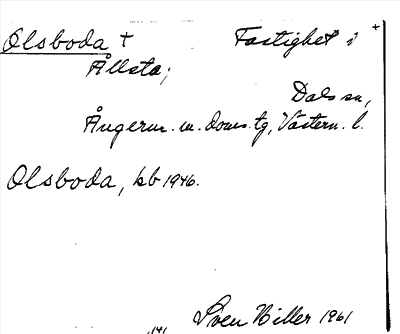 Olsboda + Fastighet i +
Ållsta,
Dals sn,
Ångerm. m. doms.tg, Västern. l.
Olsboda, kb 1946.
Sven Hiller 1961
141